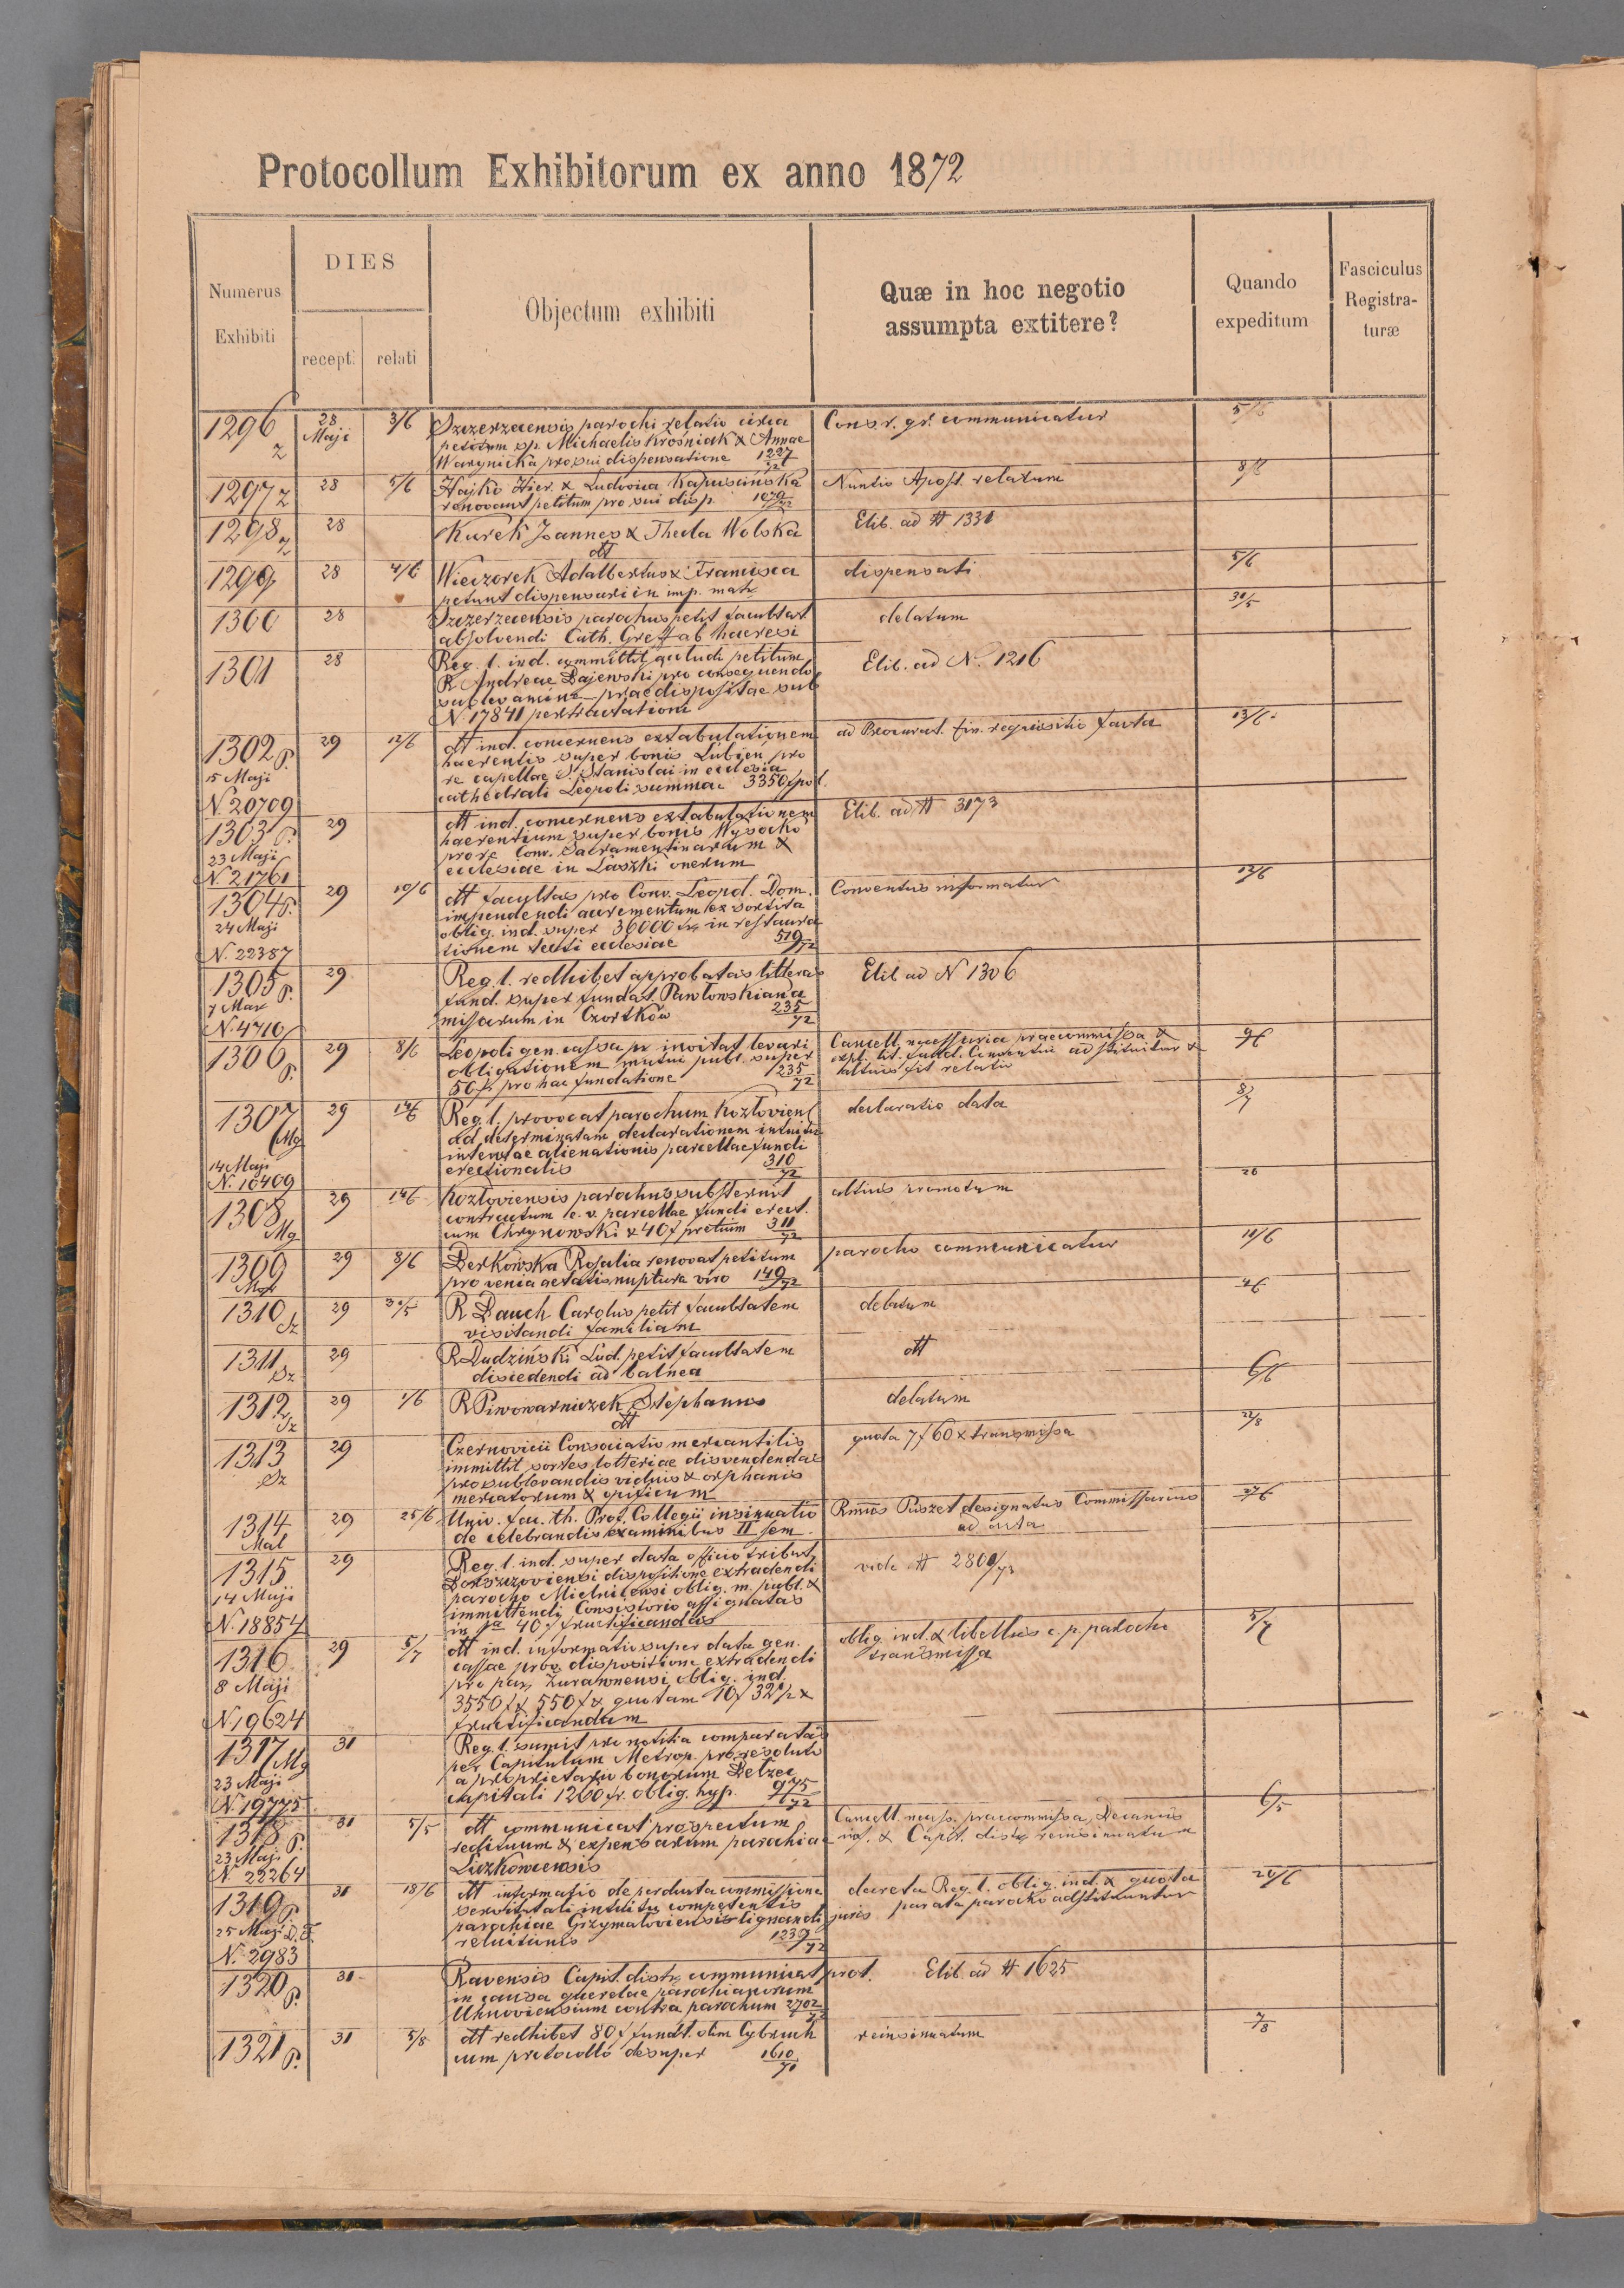 Protocollum Exhibitorum ex anno 1872
Numerus Exhibiti
DIES
recept:
relati
Objectum exhibiti
Quæ in hoc negotio assumpta extitere?
Quando expeditum
Fasciculus Registra-turæ
1296 z 28 Maji 3/6 Szczerzecensis parochi relatio circa Cons. r. gr. communicatur
petitum sp. Michaelis Krośniak & Annae
Warynicka pro sui dispensatione 1227/72
1297 z 28 5/6 Hajko Hier. & Ludovica Kapuscińska Nuntio Apost. relatum 8/6
renovant petitum pro sui disp. 1079/72
1298 z 28 Kurek Joannes & Thecla Wolska Elib. ad # 1331
dtt
1299 28 4/6 Wieczorek Adalbertus & Francisca dispensati 5/6
petunt dispensari in imp. matr.
1300 28 Szczerzecensis parochus petit facultat. delatum 30/5
absolvendi Cath. Greff ab haeresi
1301 28 Reg. l. ind. committit gutudi petitum Elib. ad N. 1216
R. Andreae Bajewski pro consequendo
sublevamine praedispositae sub
N. 17841 pertractationi
1302 P. 29 12/6 dtt ind. concernens extabulationem ad Procurat. fin. requisitio facta 13/6
15 Maji haerentis super bonis Lubien pro
re capellae S. Stanislai in ecclesia
N. 20709 cathedrali Leopoli summae 3350 f pol.
1303 P. 29 dtt ind. concernens extabulationem Elib. ad # 3173
23 Maji haerentium super bonis Wysocko
pro re Conv. Sacramentinarum &
N. 21761 ecclesiae in Laszki onerum
1304 P. 29 10/6 dtt facultas pro Conv. Leopol. Dom. Conventus informatur 12/6
24 Maji impendendi aucrementum ex sortita
oblig. ind. super 36000 fr in restaura
N. 22387 tionem tecti ecclesiae 519/72
1305 P. 29 Reg. l. redhibet approbatas litteras Elib ad N 1306
7 Mar fund. super fundat. Pawłowskiana
N. 4710 missarum in Czortków 235/72
1306 P. 29 8/6 Leopoli gen. cassa pr invitat levari Cancell. necessaria praecommissa & 9/6
obligationem mutui publ. super expl. lit. fund. Conventui adstituitur &
50 f pro hac fundatione 235/72 altius fit relatio
1307 Mg 29 14/6 Reg. l. provocat parochum Kozłovien declaratio data 8/7
ad determinatam declarationem intuitu
14 Maji intentae alienationis parcellae fundi
N. 10409 erectionalis 310/72
1308 Mg 29 14/6 Kozłoviensis parochus substernit altius promotum 20
contractum e. v. parcellae fundi erect.
cum Chrynowski & 40 f pretium 311/72
1309 29 8/6 Derkowska Rosalia renovat petitum parocho communicatur 10/6
pro venia aetatis nuptura viro 149/72
1310 Sz 29 30/5 R Bauch Carolus petit facultatem delatum 4/6
visitandi familiam
1311 Sz 29 R Dudziński Lud. petit facultatem dtt 6/6
discedendi ad balnea
1312 Sz 29 1/6 R Piwowarniczek Stephanus delatum
dtt
1313 Sz 29 Czernovicii Consociatio mercantilis quota 7 f 60 x transmissa 22/8
immittit sortes lotteriae disvendendas
pro sublevandis viduis & orphanis
mercatorum & opificum
1314 Mal 29 25/6 Univ. fac. th. Prof. Collegii insinuatio Rmus Puszet designatus Commissarius 27/6
de celebrandis examinibus II sem. ad acta
1315 29 Reg. l. ind. super data officio tribut. vide # 2800/73
14 Maji Borszczoviensi dispositione extradendi
parocho Mielnicensi oblig. m. publ. &
immittendi Consistorio assignatas
N. 18854 40 f fructificandas
1316 29 5/7 dtt ind. informatio super data gen. oblig. ind. & libellus c. p. parocho 5/7
cassae prov. dispositione extradendi transmissa
8 Maji pro par. Zurawnensi oblig. ind.
3550 f & 550 f & quotam 10 f 32 1/2 x
N 19624 fructificandam
1317 Mg 31 Reg. l. sumit pro notitia comparatas
per Capitulum Metrop. pro resoluto
23 Maji a proprietario bonorum Belzec
N. 19775 capitali 1260 fr. oblig. hyp. 975/72
1318 P. 31 5/5 dtt communicat prospectum Cancell. necess. praecommissa, Decanus 6/5
23 Maji redituum & expensarum parochiae inf. & Capit. distr. reinsinuatum
N 22264 Liczkowcensis
1319 P. 31 18/6 dtt informatio de perducta commissione decreta Reg. l. oblig. ind. & quota 20/6
25 Maji D. F. servitutali intuitu competentis parata parocho adstituuntur
parochiae Grzymałoviensis lignandi juris
N. 2983 reluitionis 1239/72
1320 P. 31 Ravensis Capit. distr. communicat prot. Elib. ad # 1625
in causa querelae parochianorum
Uhnoviensium contra parochum 2702/72
1321 P. 31 5/8 dtt redhibet 80 f fundat. olim Cybruch reinsinuatum 7/8
cum protocollo desuper 1610/71